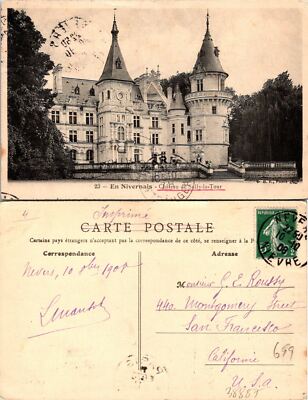 23 - En Nivernais - Château de Suilly-la-Tour
4
Imprimé
CARTE POSTALE
Certains pays étrangers n'acceptant pas la correspondance de ce côté, se renseigner à la P
Correspondance
Adresse
Nevers, 10 1907
Monsieur G. E. Roussy
440. Montgomery Street
San Francisco
Californie
U.S.A.
699